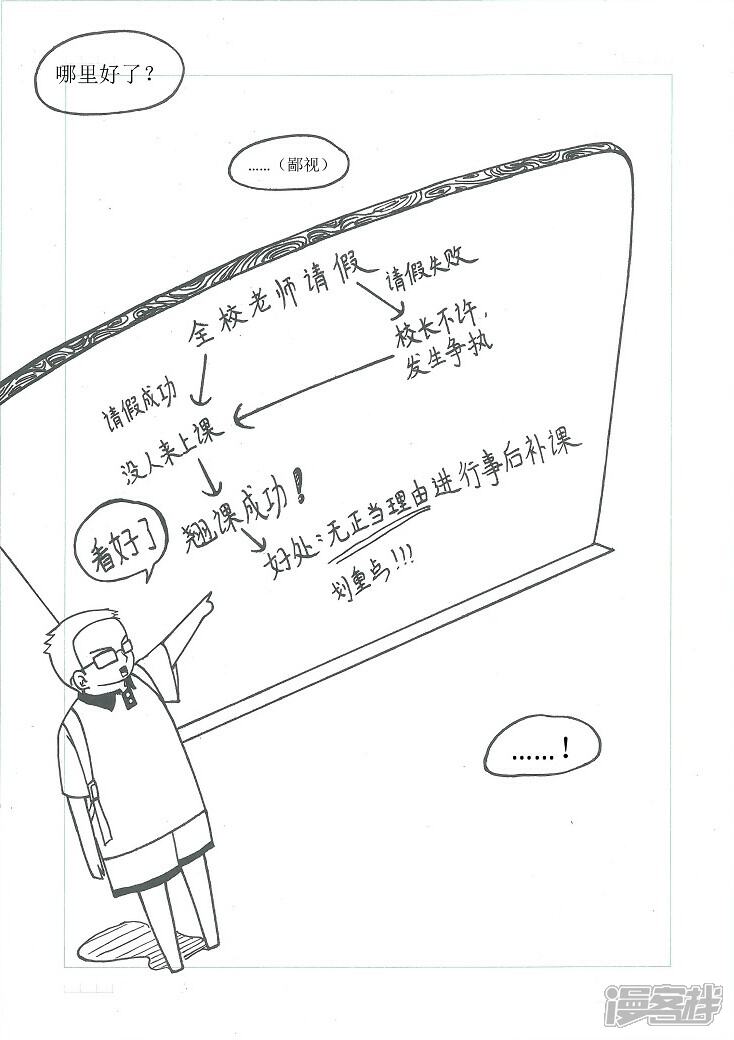 哪里好了？
……（鄙视）
全校老师请假
请假失败
校长不许，
发生争执
请假成功
没人来上课
翘课成功！
看好了
好处：无正当理由进行事后补课
划重点！！！
……！
漫客栈